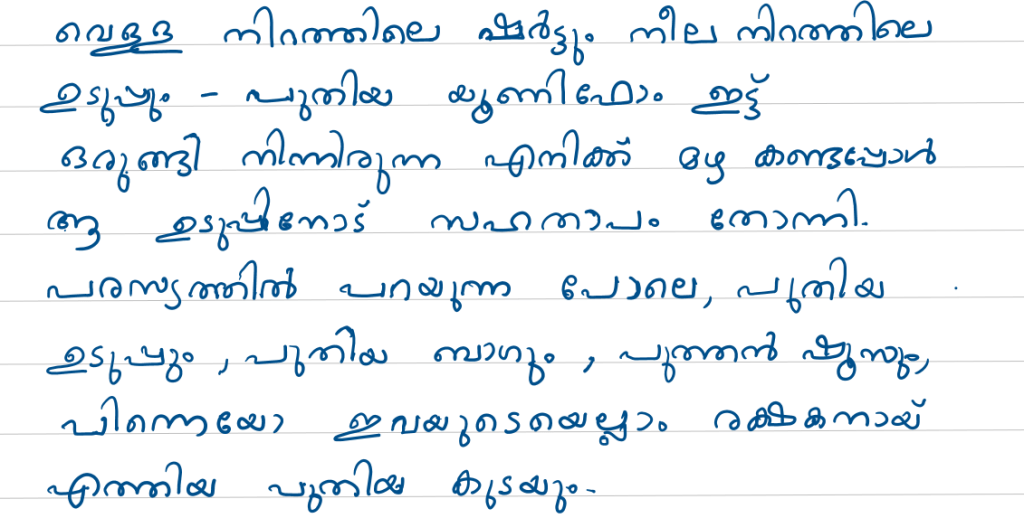 വെള്ള നിറത്തിലെ ഷർട്ടും നീല നിറത്തിലെ
ഉടുപ്പും - പുതിയ യൂണിഫോം ഇട്ട്
ഒരുങ്ങി നിന്നിരുന്ന എനിക്ക് മഴ കണ്ടപ്പോൾ
ആ ഉടുപ്പിനോട് സഹതാപം തോന്നി.
പരസ്യത്തിൽ പറയുന്ന പോലെ, പുതിയ
ഉടുപ്പും, പുതിയ ബാഗും, പുത്തൻ ഷൂസും,
പിന്നെയോ ഇവയുടെയെല്ലാം രക്ഷകനായ്
എത്തിയ പുതിയ കുടയും.